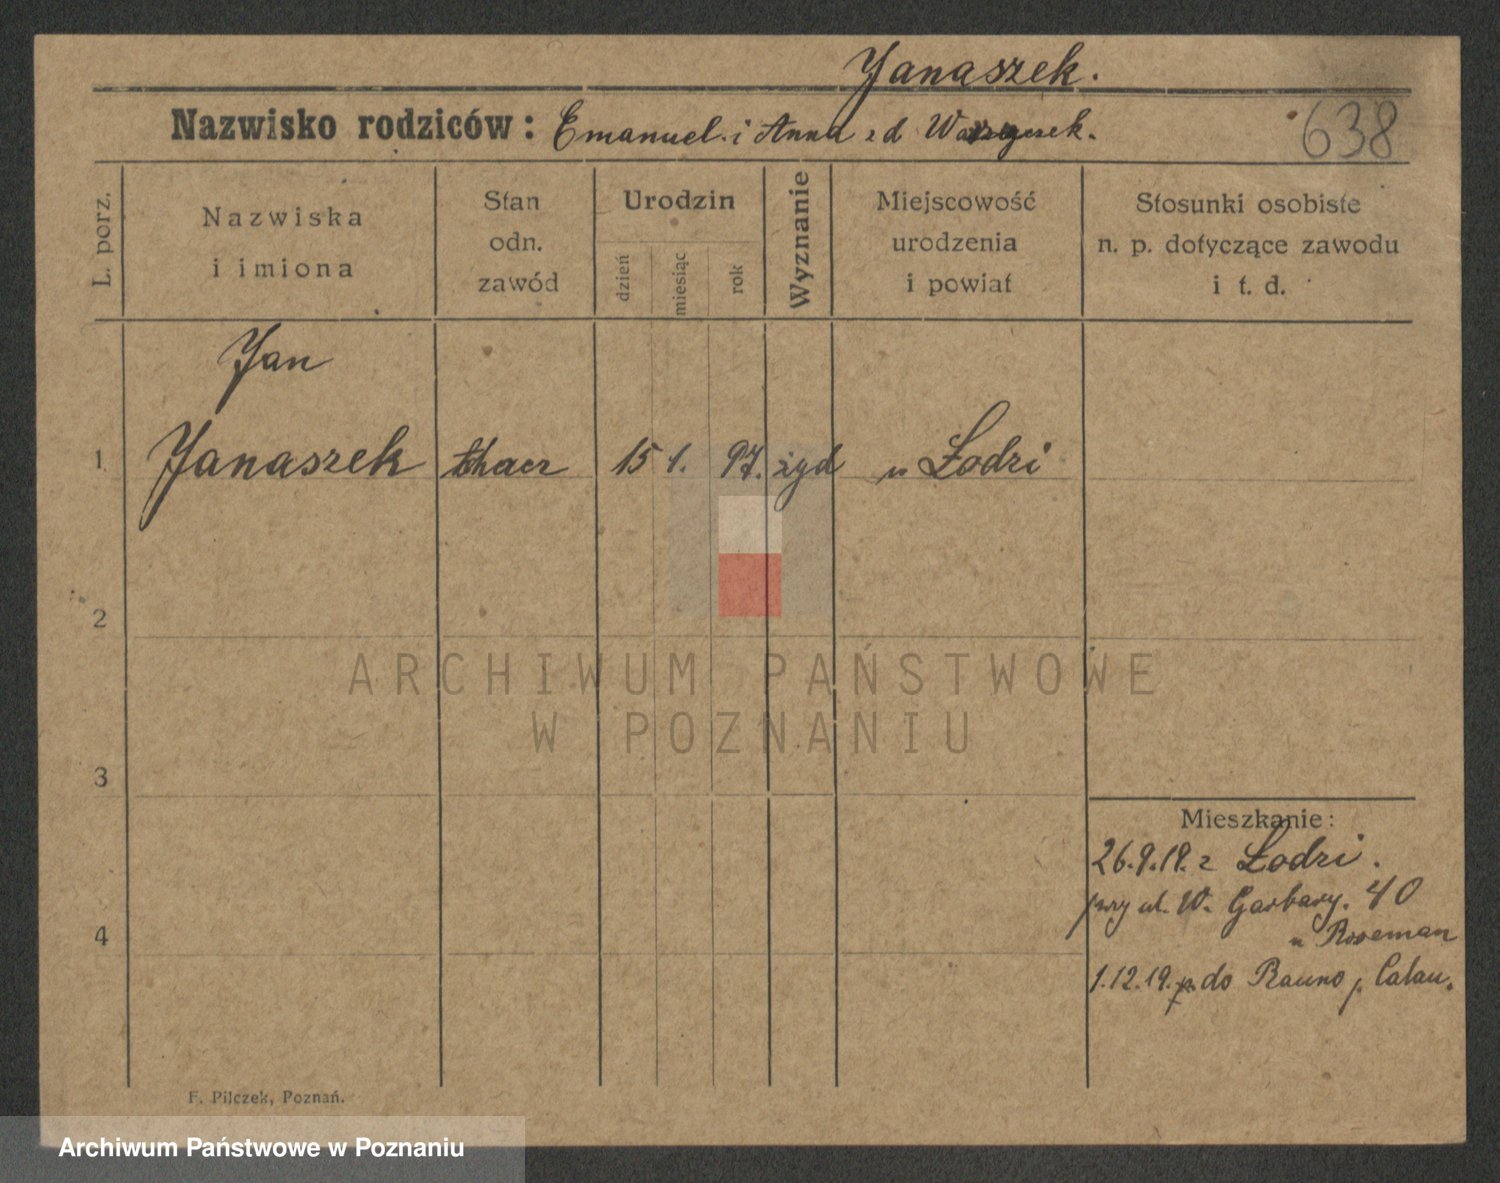 Janaszek.
Nazwisko rodziców: Emanuel i Anna z d
638
L. porz.
Nazwiska
i imiona
Stan
odn.
zawód
Urodzin
dzień
miesiąc
rok
Wyznanie
Miejscowość
urodzenia
i powiat
Stosunki osobiste
n. p. dotyczące zawodu
i t. d.
Jan
1 Janaszek tkacz 15 1. 97. żyd w Łodzi
2
3
4
ARCHIWUM PAŃSTWOWE
W POZNANIU
Mieszkanie:
26.9.19. z Łodzi.
przy ul. W. Garbary. 40
u Roseman
1.12.19. do p. Calau.
F. Pilczek, Poznań.
Archiwum Państwowe w Poznaniu